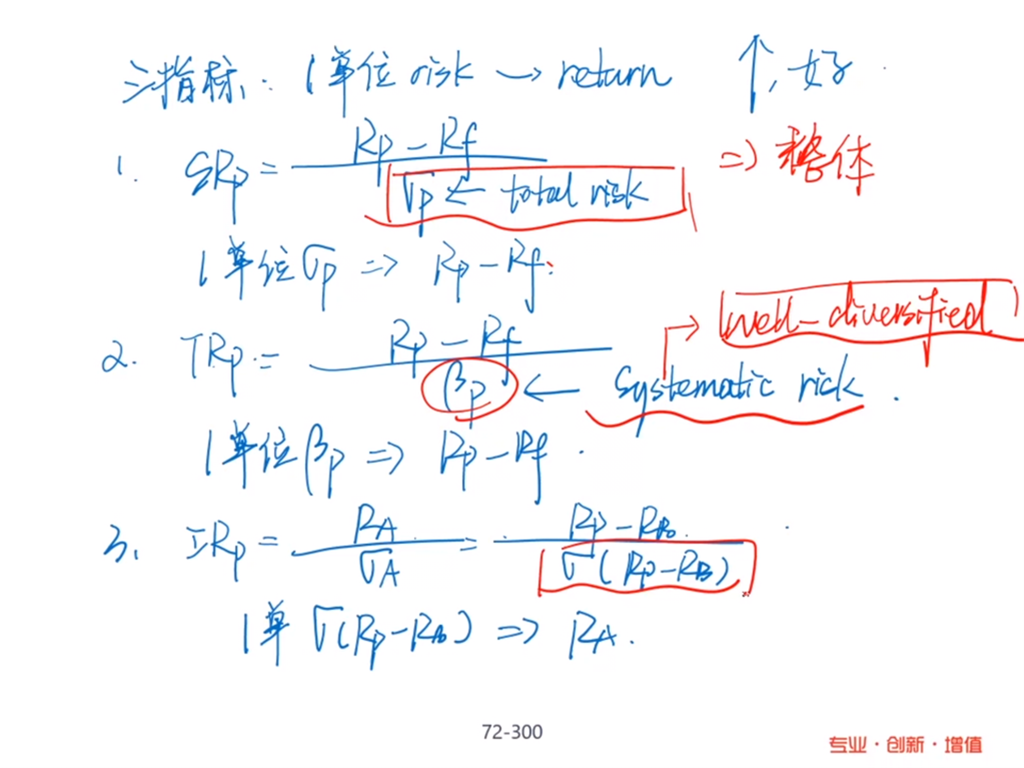 三指标: 1单位risk → return ↑, 好
1. SRp = (Rp - Rf) / (σp ← total risk) => 整体
1单位σp => Rp - Rf
2. TRp = (Rp - Rf) / (βp ← systematic risk) → well-diversified
1单位βp => Rp - Rf
3. IRp = RA / σA = (Rp - RB) / σ(Rp - RB)
1单 σ(Rp - RB) => RA.
72-300
专业·创新·增值